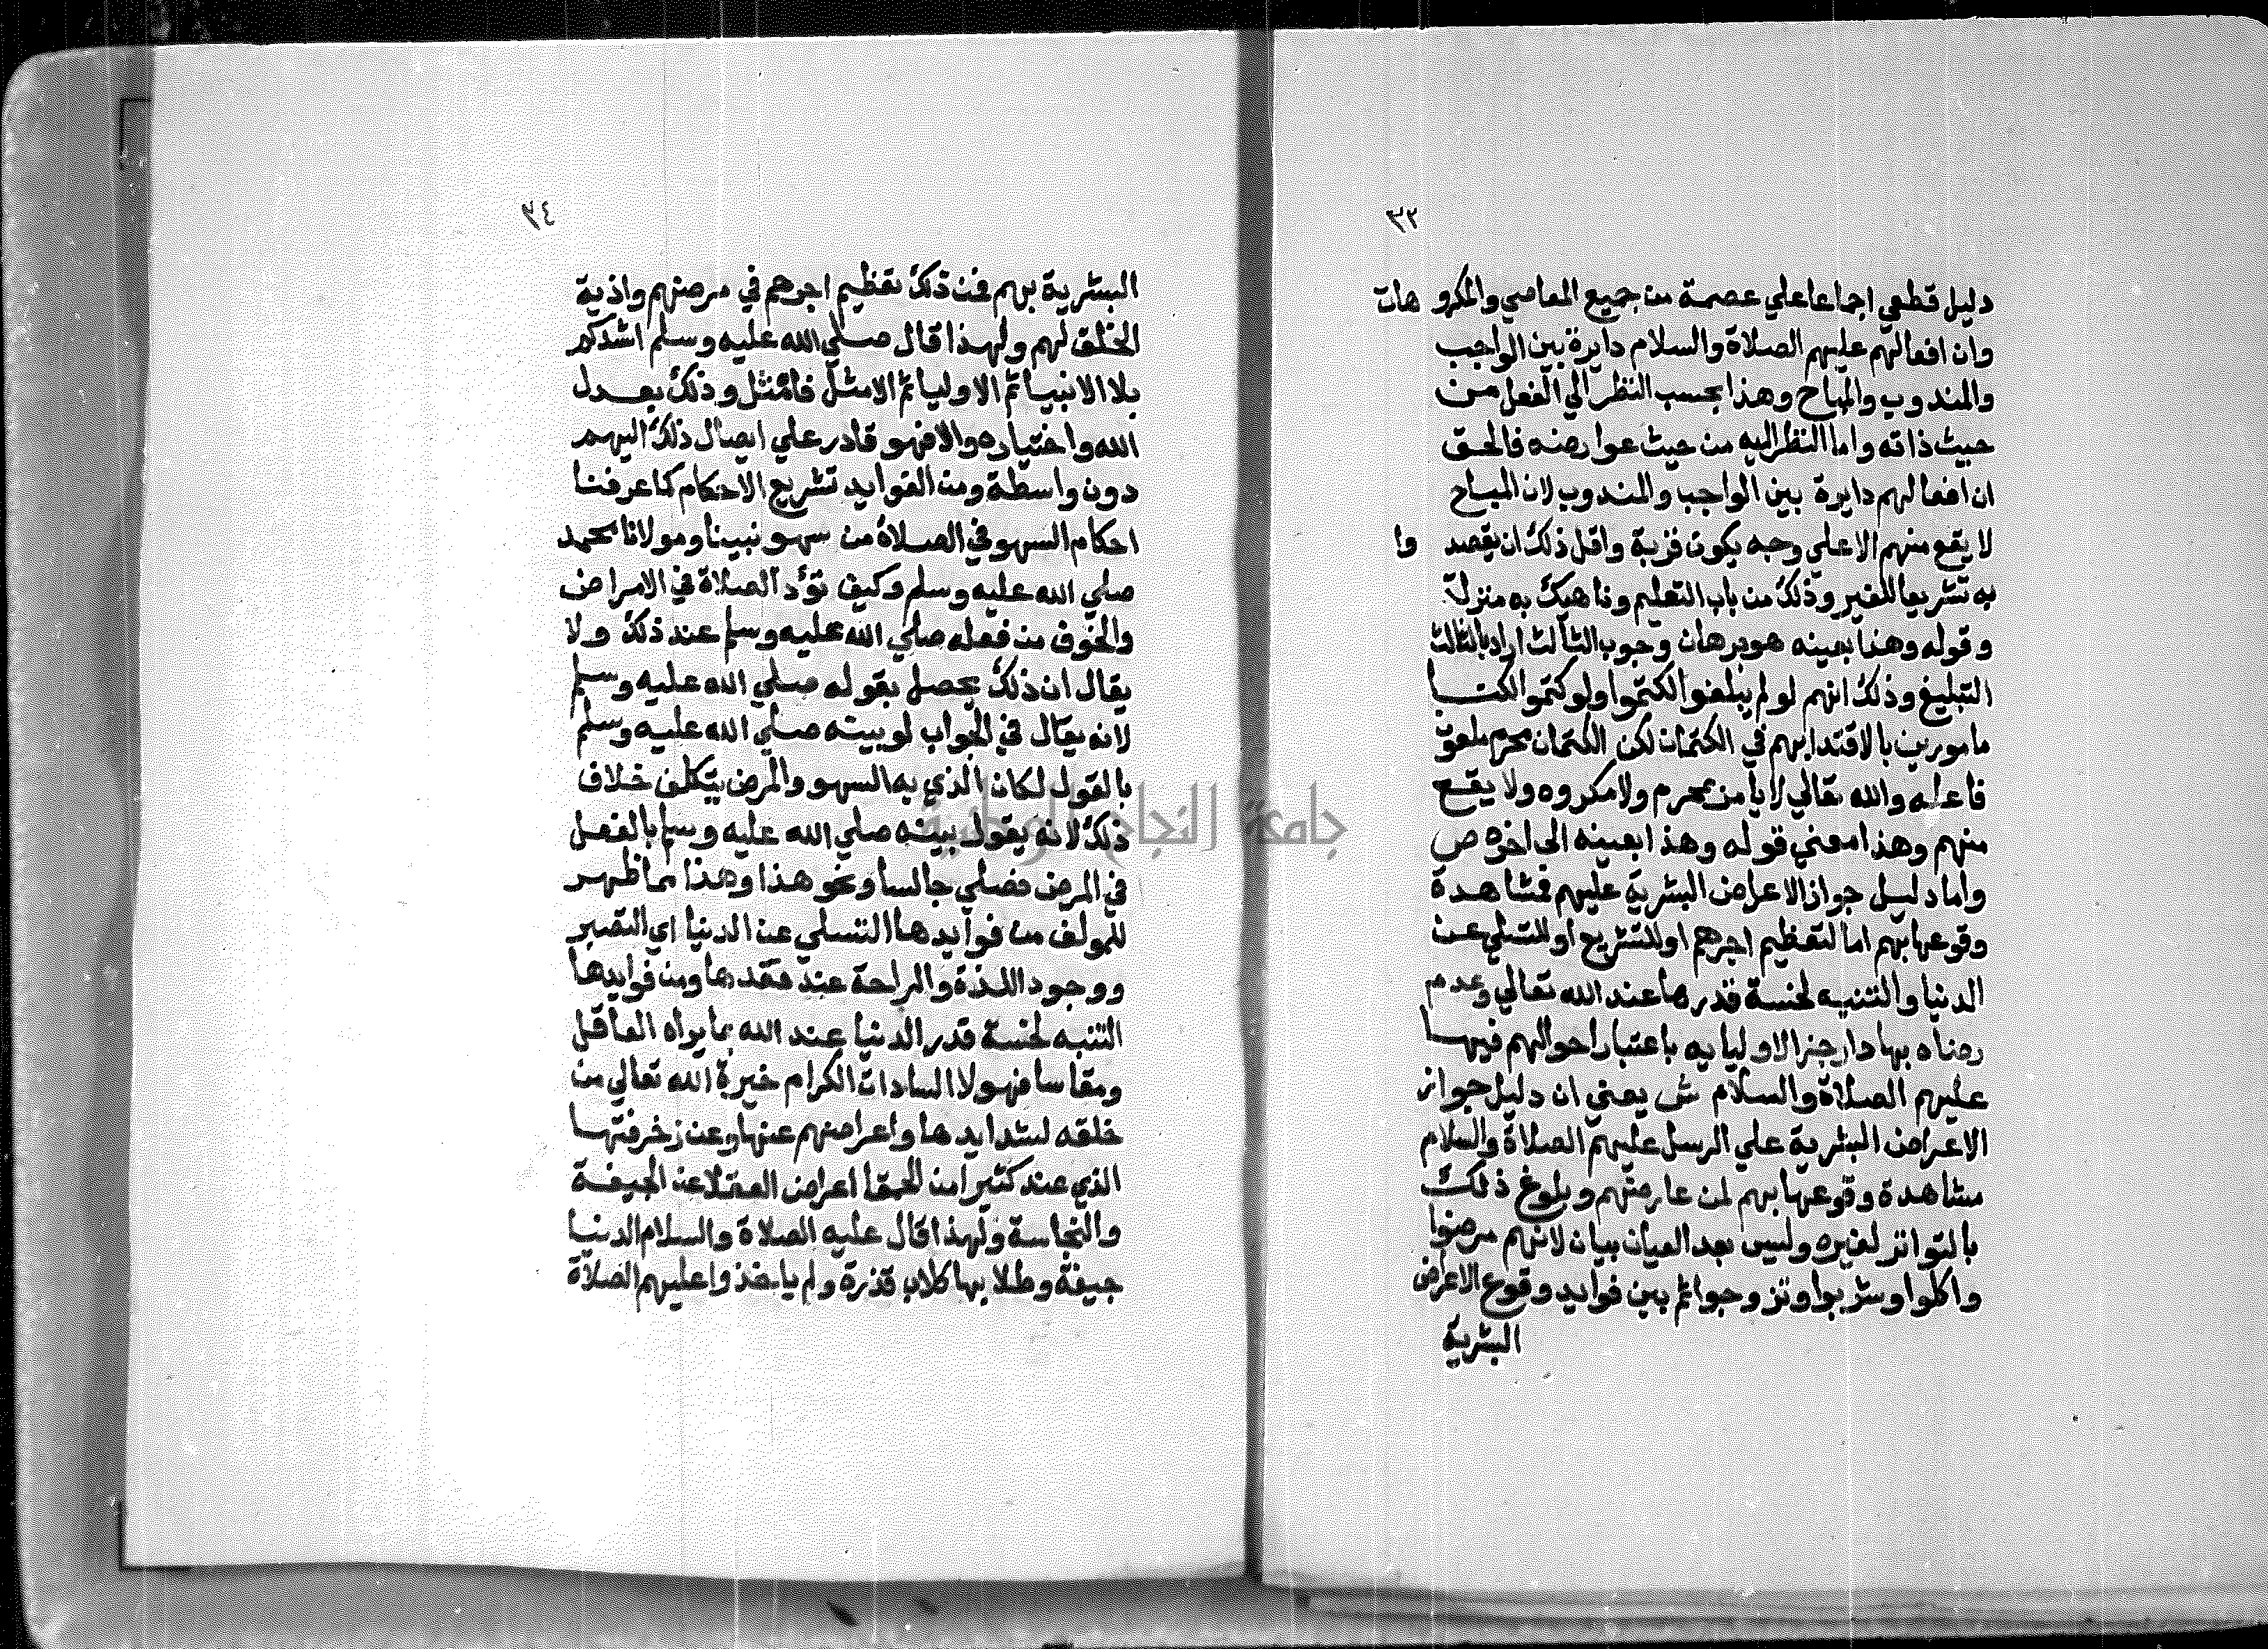 ٣٣
دليل قطعي اجماعا علي عصمة من جميع المعاصي والمكروهات
وان افعالهم عليهم الصلاة والسلام دايرة بين الواجب
والمندوب والمباح وهذا بحسب النظر الي الفعل من
حيث ذاته واما النظر اليه من حيث عوارضه فالحق
ان افعالهم دايرة بين الواجب والمندوب لان المباح
لا يقع منهم الا علي وجه يكون قربة واقل ذلك ان يقصد وا
به تشريعا للغير وذلك من باب التعليم وناهيك به منزلة
وقوله وهذا بعينه هو برهان وجوب الثالث اراد بالثالث
التبليغ وذلك انهم لو لم يبلغوا لكتموا ولو كتموا لكنا
مامورين بالاقتدا بهم في الكتمان لكن الكتمان محرم ملعون
فاعله والله تعالي لا يامر بمحرم ولا مكروه ولا يقع
منهم وهذا معني قوله وهذا بعينه الى اخره ص
واما دليل جواز الاعراض البشرية عليهم فمشاهدة
وقوعها بهم اما لتعظيم اجرهم او للتشريع او للتسلي عن
الدنيا والتنبيه لخسة قدرها عند الله تعالي وعدم
رضاه بها دار جزا لاوليايه باعتبار احوالهم فيها
عليهم الصلاة والسلام ش يعني ان دليل جواز
الاعراض البشرية علي الرسل عليهم الصلاة والسلام
مشاهدة وقوعها بهم لمن عارضهم وبلوغ ذلك
بالتواتر لغيره وليس بعد العيان بيان لانهم مرضوا
واكلوا وشربوا وتزوجوا ثم بين فوايد وقوع الاعراض
البشرية
٣٤
البشرية بهم فمن ذلك تعظيم اجرهم في مرضهم واذية
الخلق لهم ولهذا قال صلي الله عليه وسلم اشدكم
بلا الانبيا ثم الاوليا ثم الامثل فالمثل وذلك بعدل
الله واختياره والا فهو قادر علي ايصال ذلك اليهم
دون واسطة ومن الفوايد تشريع الاحكام كما عرفنا
احكام السهو في الصلاة من سهو نبينا ومولانا محمد
صلي الله عليه وسلم وكيف تؤدا الصلاة في الامراض
والخوف من فعله صلي الله عليه وسلم عند ذلك ولا
يقال ان ذلك يحصل بقوله صلي الله عليه وسلم
لانه يقال في الجواب لو بينه صلي الله عليه وسلم
بالقول لكان الذي به السهو والمرض يتكلف خلاف
ذلك لانه يقول بينه صلي الله عليه وسلم بالفعل
في المرض فصلي جالسا ونحو هذا وهذا مما ظهر
للمولف من فوايدها التسلي عن الدنيا اي التصبر
ووجود اللذة والراحة عند فقدها ومن فوايدها
التنبه لخسة قدر الدنيا عند الله بما يراه العاقل
ومقاساة هولا السادات الكرام خيرة الله تعالي من
خلقه لشدايدها واعراضهم عنها وعن زخرفتها
الذي عند كثير من الحمقا اعراض العقلا عن الجيفة
والنجاسة ولهذا قال عليه الصلاة والسلام الدنيا
جيفة وطلابها كلاب قذرة ولم ياخذوا عليهم الصلاة
جامعة النجاح الوطنية